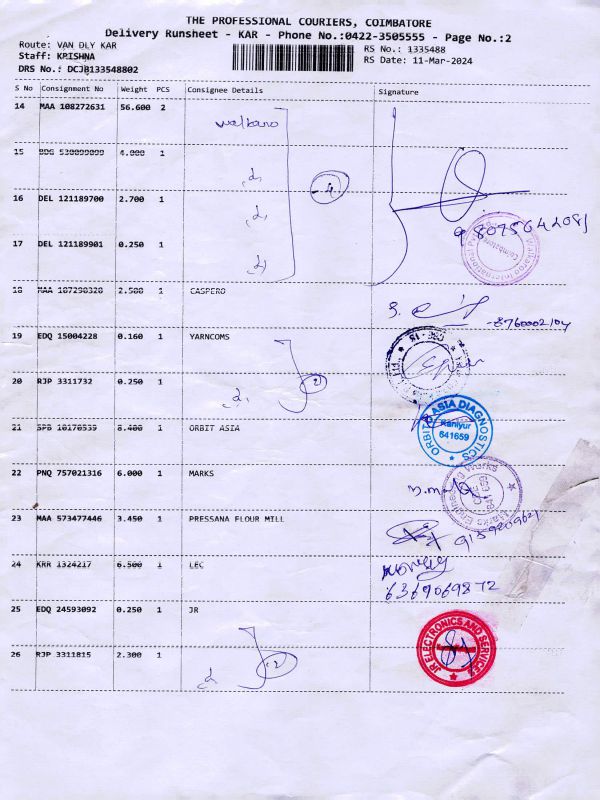 THE PROFESSIONAL COURIERS, COIMBATORE
Delivery Runsheet - KAR - Phone No.:0422-3505555 - Page No.:2
Route: VAN DLY KAR
RS No.: 1335488
Staff: KRISHNA
RS Date: 11-Mar-2024
DRS No.: DCJB133548802
S No Consignment No Weight PCS Consignee Details Signature
14 MAA 108272631 56.600 2
walkaro
15 4.000 1
4
16 DEL 121189700 2.700 1
17 DEL 121189901 0.250 1
Walkaroo International
Coimbatore
18 MAA 107290320 2.500 1 CASPERO
8760002104
19 EDQ 15004228 0.160 1 YARNCOMS
CBE - 15
20 RJP 3311732 0.250 1
2
21 8.400 1 ORBIT ASIA
ORBIT ASIA DIAGNOSTICS
Kaniyur
641659
22 PNQ 757021316 6.000 1 MARKS
Marks Engineering Works
CBE
641 659
23 MAA 573477446 3.450 1 PRESSANA FLOUR MILL
24 KRR 1324217 6.500 1 LEC
6369069872
25 EDQ 24593092 0.250 1 JR
JR ELECTRONICS AND SERVICES
26 RJP 3311815 2.300 1
2